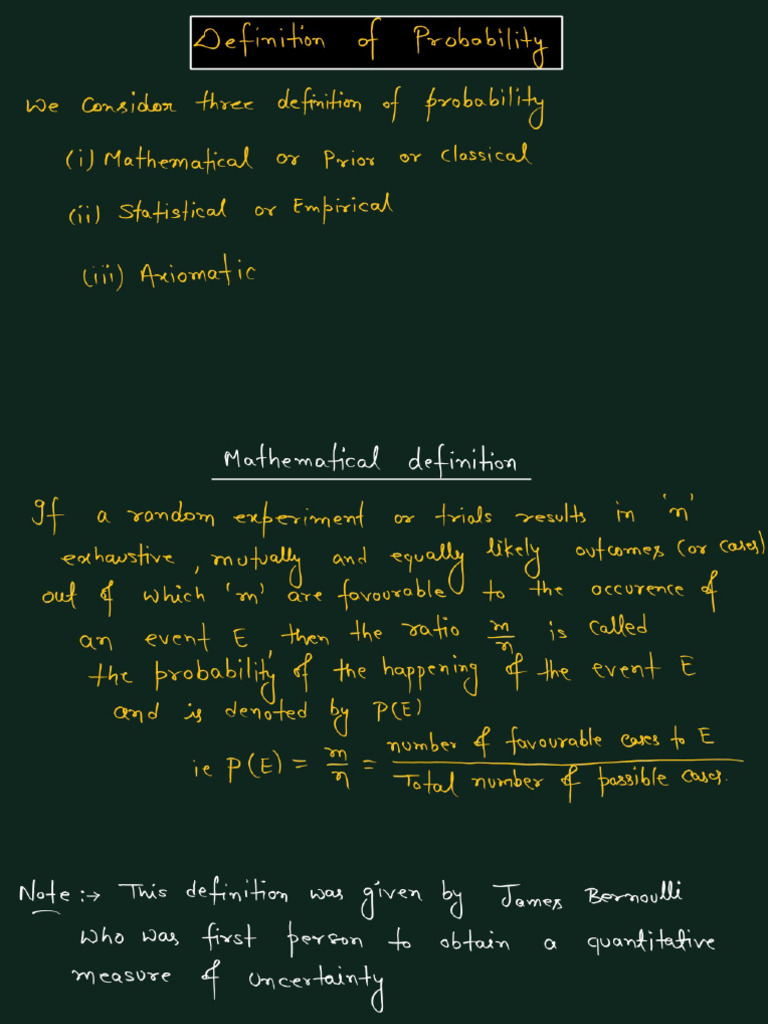 Definition of Probability
We Consider three definition of probability
(i) Mathematical or Prior or Classical
(ii) Statistical or Empirical
(iii) Axiomatic
Mathematical definition
If a random experiment or trials results in 'n'
exhaustive, mutually and equally likely outcomes (or cases)
out of which 'm' are favourable to the occurence of
an event E, then the ratio m/n is called
the probability of the happening of the event E
and is denoted by P(E)
ie P(E) = m/n = number of favourable cases to E / Total number of possible cases.
Note :→ This definition was given by James Bernoulli
who was first person to obtain a quantitative
measure of uncertainty